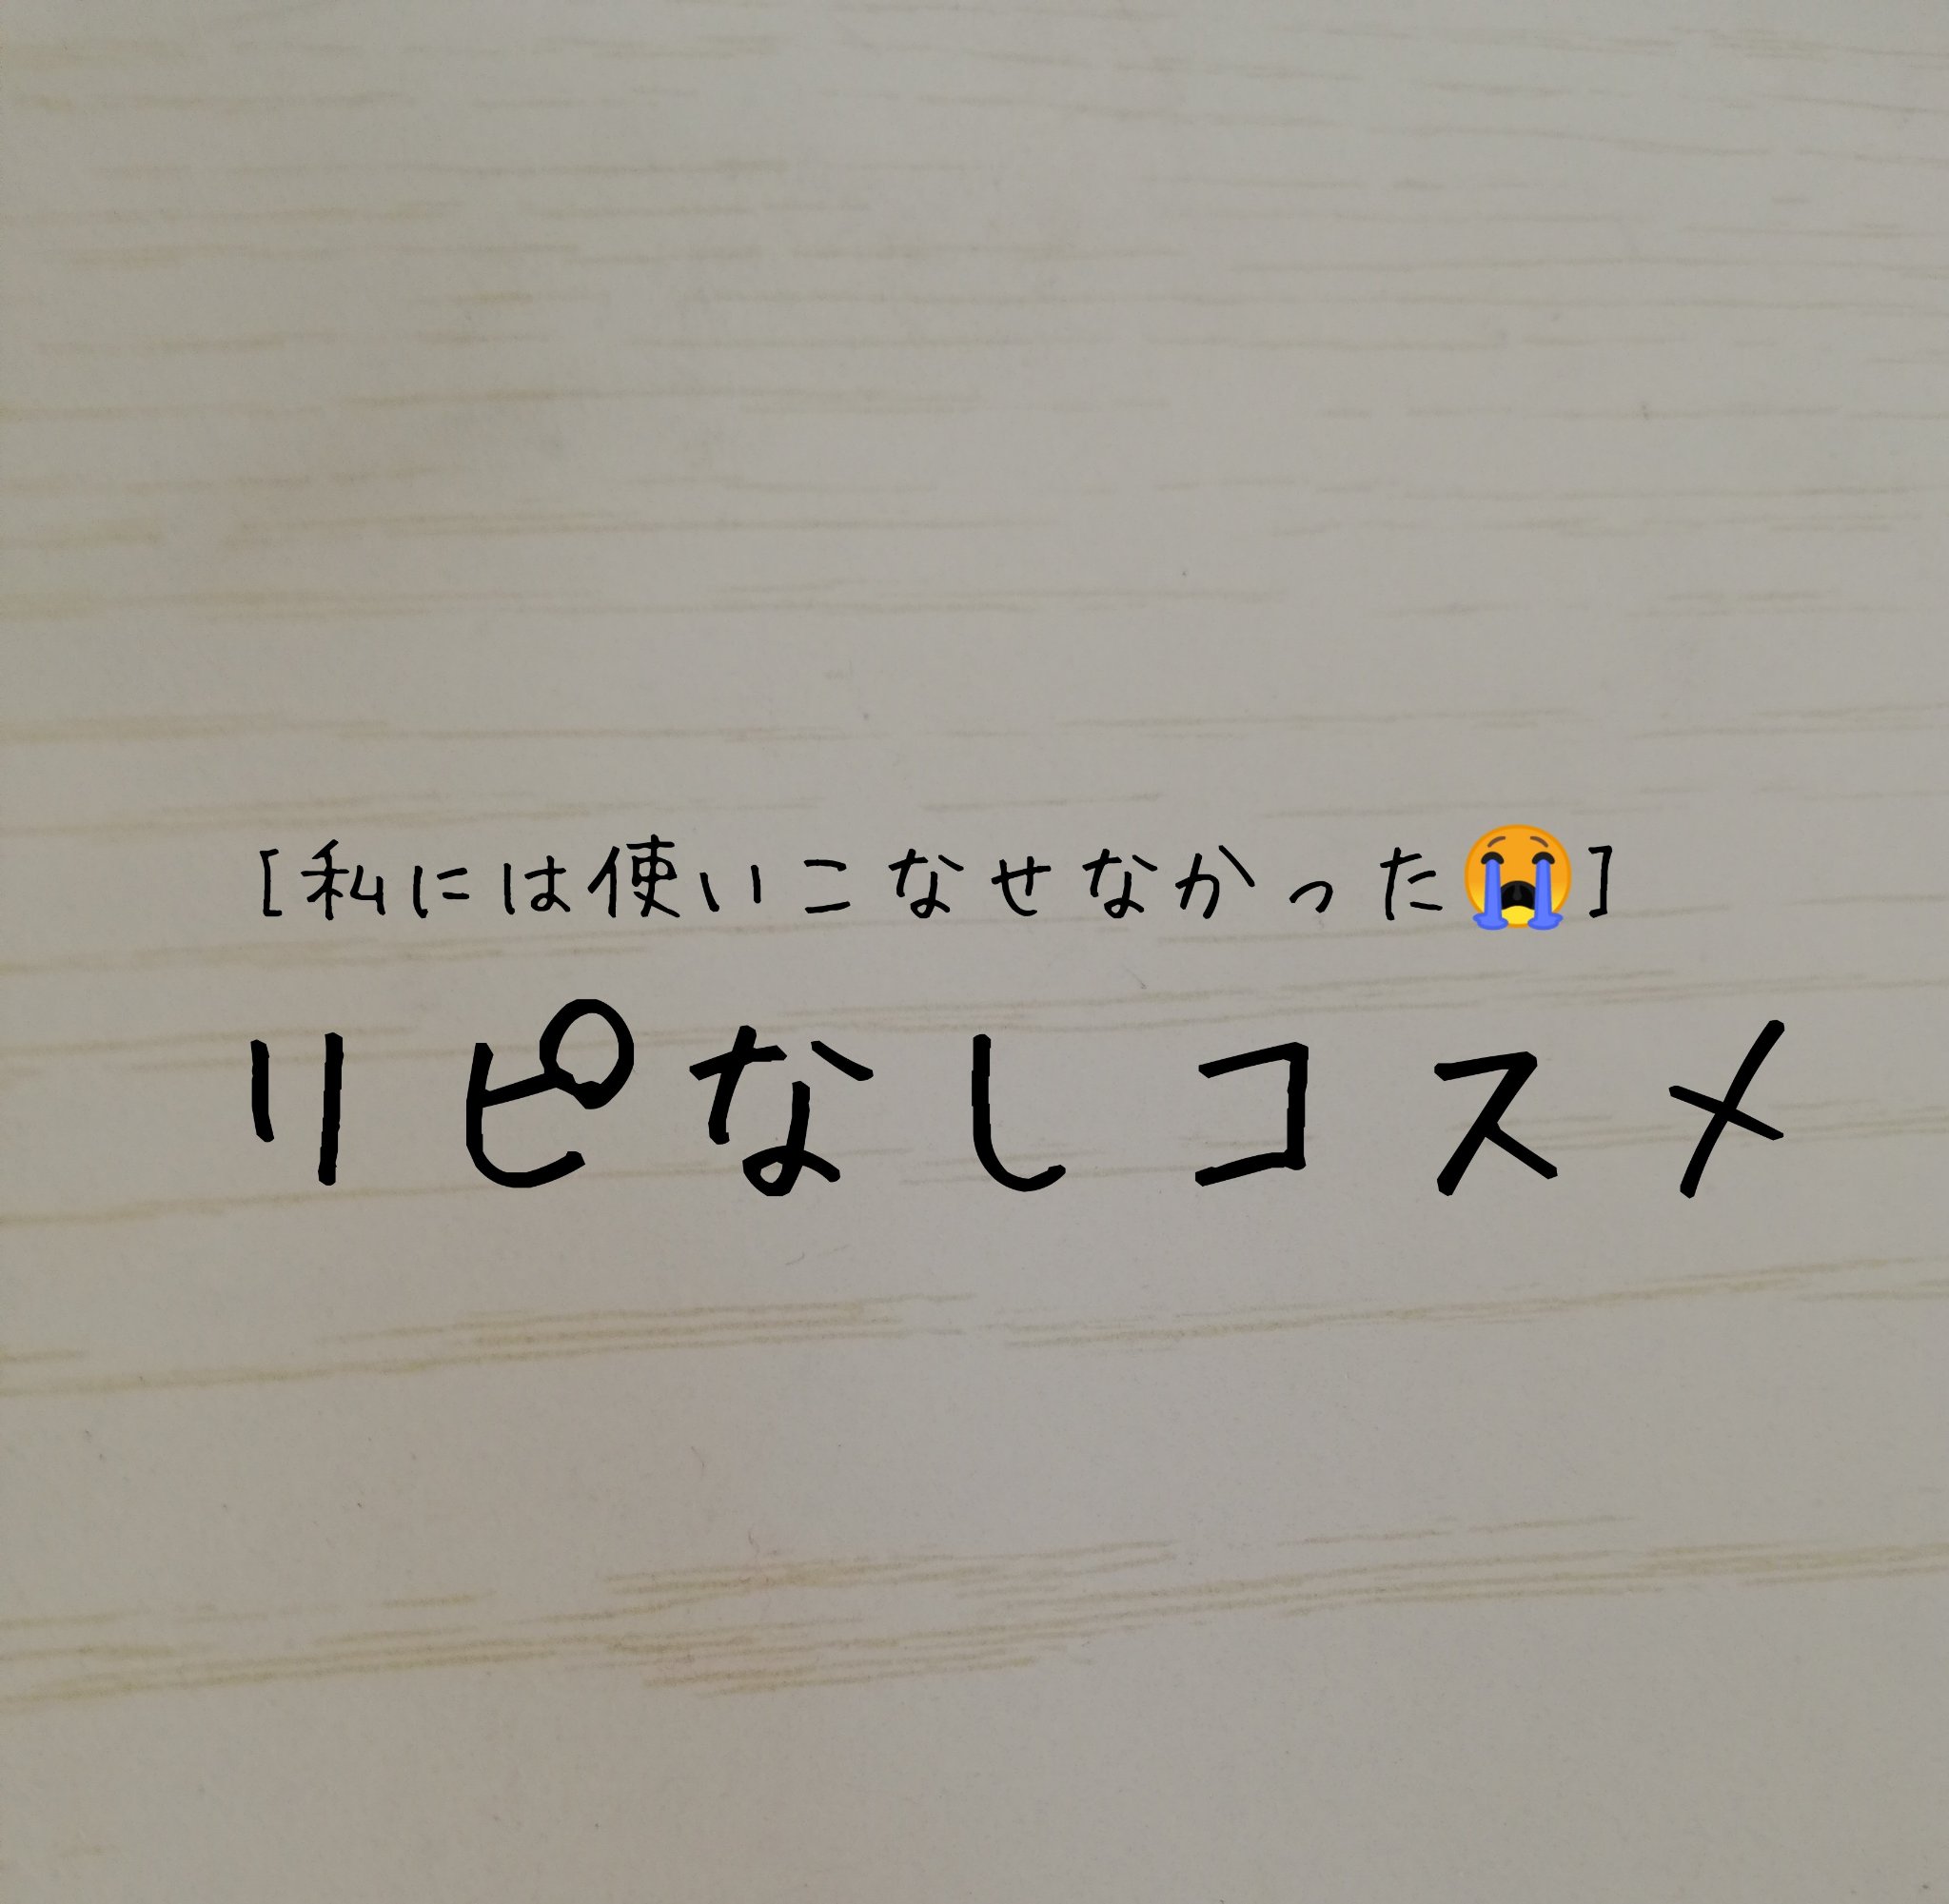 [私には使いこなせなかった😭]
リピなしコスメ